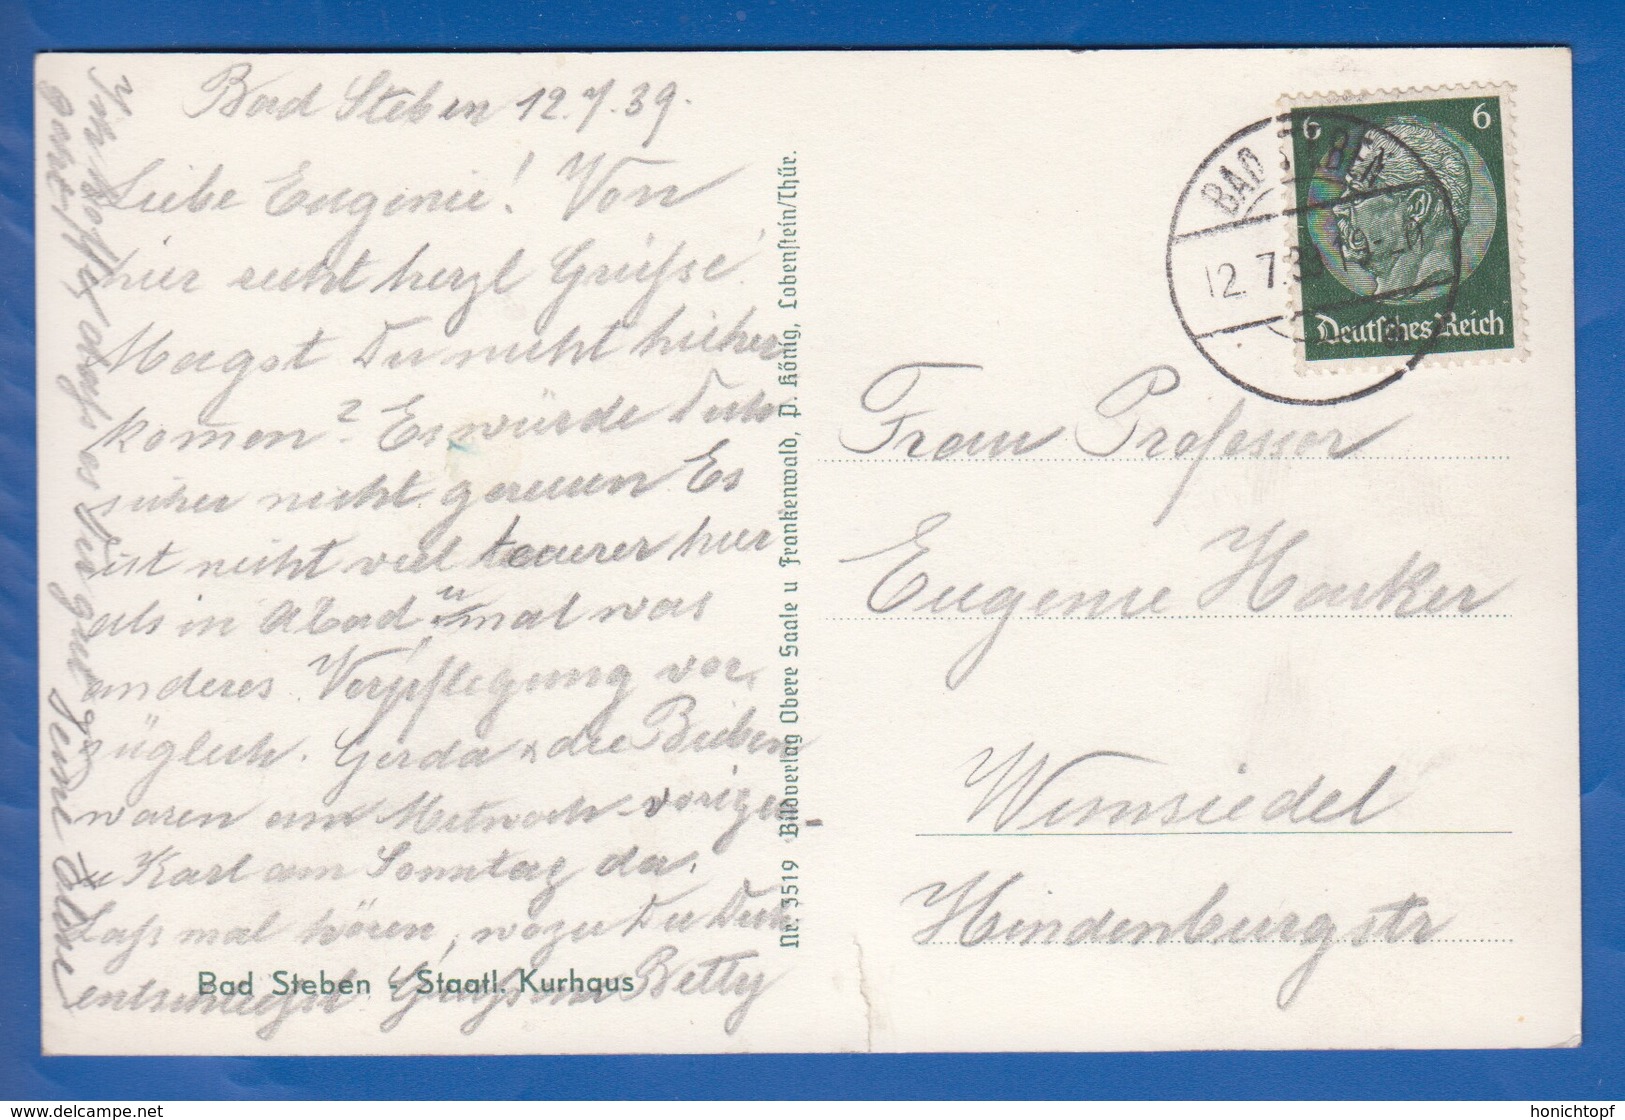 Bad Steben 12.7.39.
Liebe Eugenie! Von
hier recht herzl Grüsse!
Magst Du nicht hieher
komen? Es würde Dich
sicher nicht gereuen Es
ist nicht viel teuerer hier
als in Abad u mal was
anderes Verpflegung vor-
züglich. Gerda u die Buben
waren am Mitwoch vorigen
u Karl am Sonntag da.
Lass mal hören, wozu Du Dich
entschliesst Betty
Ich hoffe, dass es Dir gut geht
Bad Steben - Staatl. Kurhaus
Nr. 3519 Bildverlag Obere Saale u Frankenwald, P. König, Lobenstein/Thür.
BAD STEBEN
12.7.39 19-
6 6
Deutsches Reich
Frau Professor
Eugenie
Wunsiedel
Hindenburgstr
honichtopf